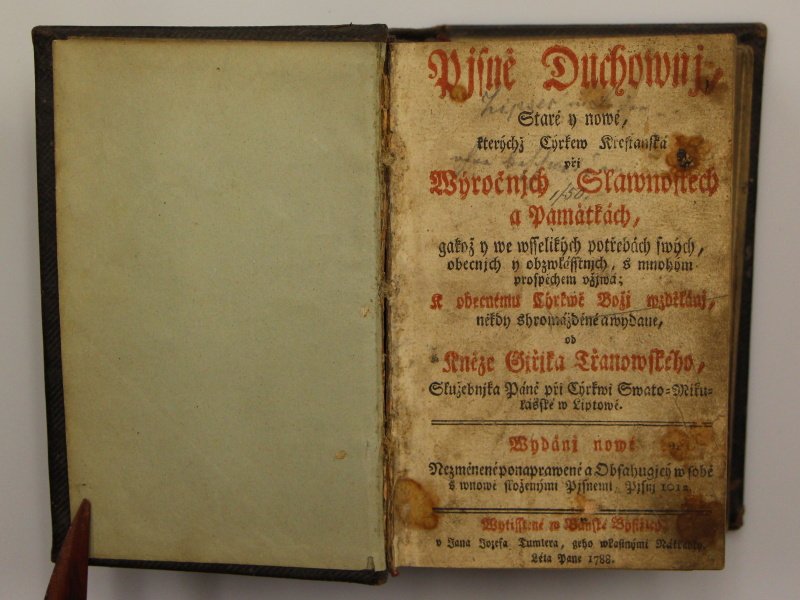 Pjsně Duchownj,
Staré y nowé,
kterýchž Cýrkew Křestianská
při
Wýročnjch Slawnostech
a Památkách,
gakož y we wsselikých potřebách swých,
obecnjch y obzwlásstnjch, s mnohým
prospěchem vžjwá;
K obecnému Cýrkwě Božj wzdělánj,
někdy shromážděné a wydané,
od
Kněze Giřjka Třanowského,
Služebnjka Páně při Cýrkwi Swato-Miku-
lásské w Liptowě.
Wydánj nowé
Nezměněné ponaprawené a Obsahugjcý w sobě
s wnowě složenými Pjsněmi, Pjsnj
Wytisstěné w Báňské Bystřicy,
v Jana Jozefa Tumlera, geho wlastnjmi Náklady.
Léta Páně 1788.